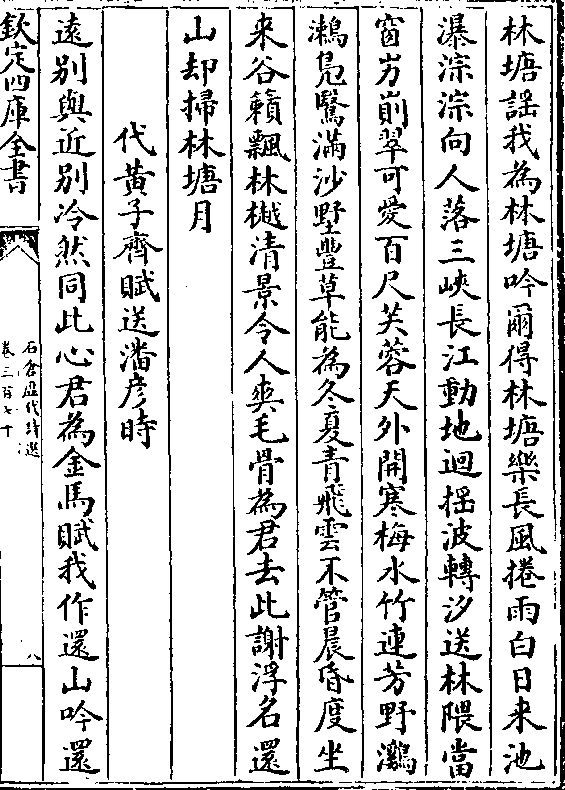 林塘謡我為林塘吟爾得林塘樂長風捲雨白日来池
瀑淙淙向人落三峽長江動地迴揺波轉汐送林隈當
窗岝崱翠可愛百尺芙蓉天外開寒梅水竹連芳野鸂
鶒鳬鷖滿沙墅豐草能為冬夏青飛雲不管晨昏度坐
来谷籟飄林樾清景令人爽毛骨為君去此謝浮名還
山却掃林塘月
代黄子齊賦送潘彦時
遠別與近別冷然同此心君為金馬賦我作還山吟還
欽定四庫全書
石倉歴代詩選
卷三百七十
八